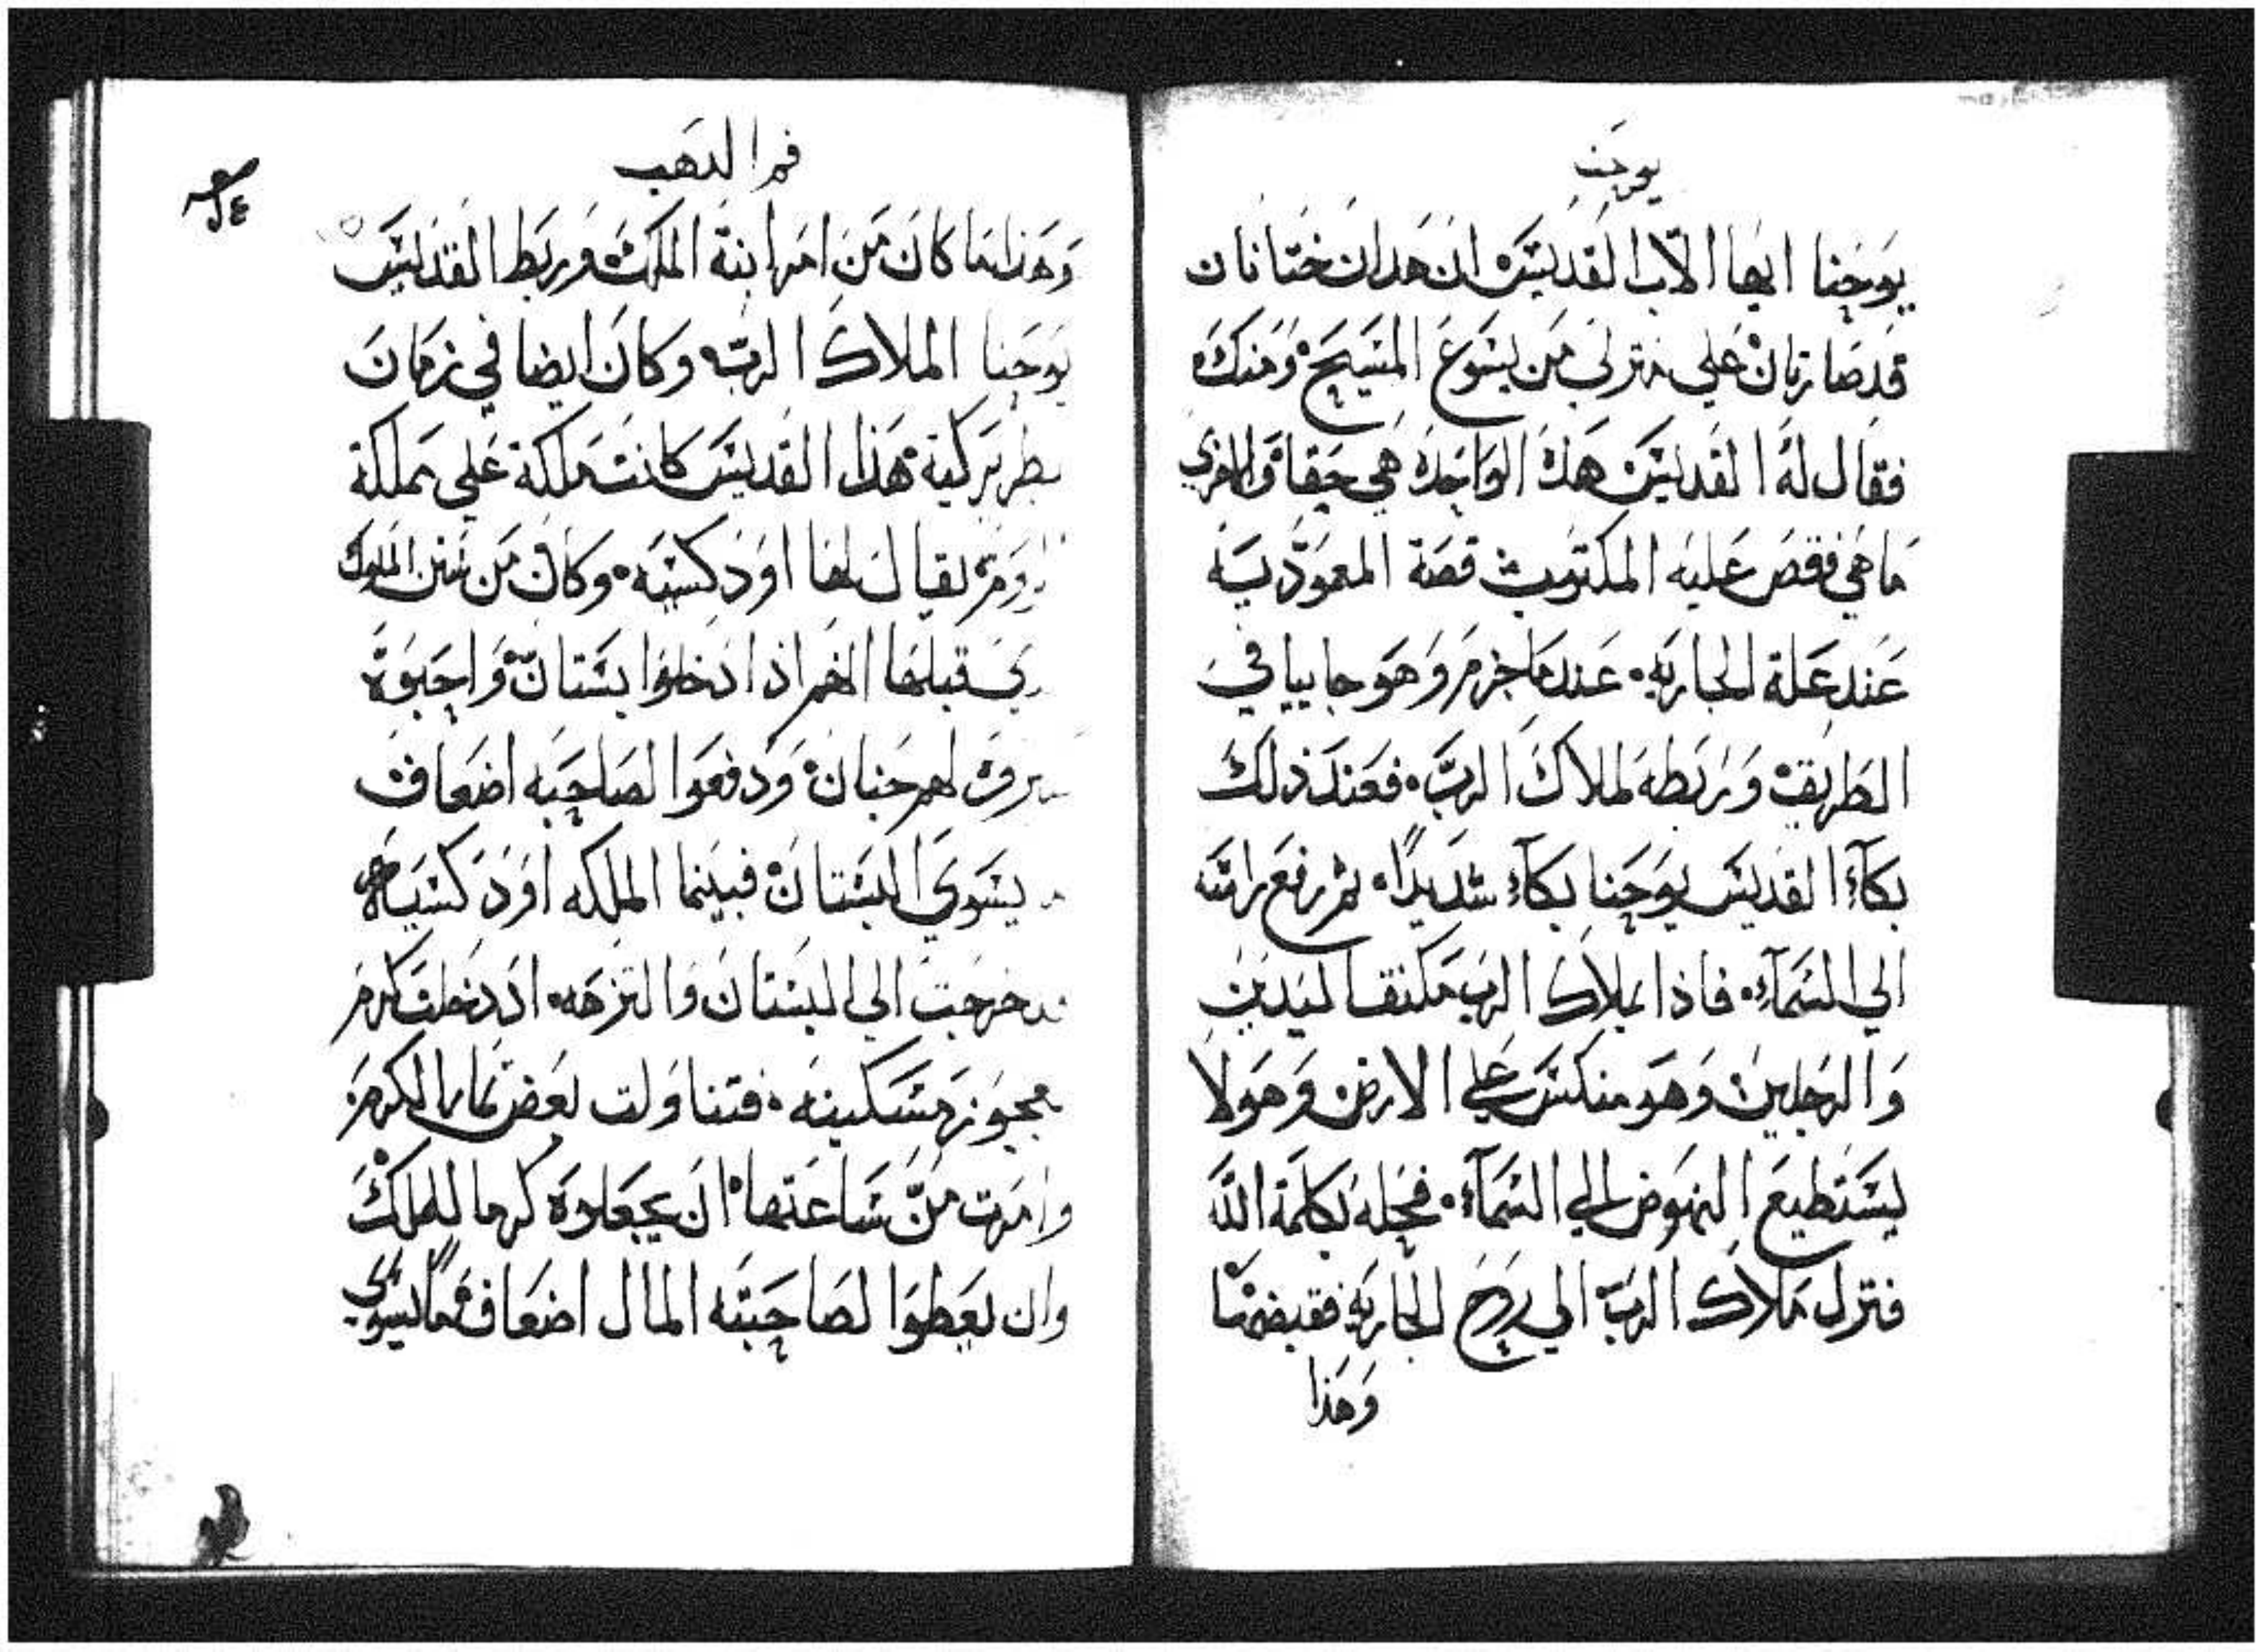 يوحنا
يوحنا ايها الاب القديس ان هدان ختانان
قد صارتان علي منزلي من يسوع المسيح ومنك
فقال له القديس هده الواحده هي حقا والاخري
ما هي فقص عليه المكتوب قصة المعموديه
عند علة الجاريه عندما خرم وهو جاييا في
الطريق وربطه لملاك الرب فعند ذلك
بكاء القديس يوحنا بكاء شديدا ثم رفع راسه
الي السماء فاذا بملاك الرب مكتف اليدين
والرجلين وهو منكس علي الارض وهو لا
يستطيع النهوض الي السماء فحله بكلمة الله
فنزل ملاك الرب الي روح الجاريه فقبضها
وهذا
فم الدهب
وهذا ما كان من امر ابنة الملك وربط القديس
يوحنا الملاك الرب وكان ايضا في زمان
بطريركية هذا القديس كانت ملكة علي مملكة
الروم يقال لها اودكسيه وكان من سنن الملوك
قبلها انهم اذا دخلوا بستان واحبوه
لهم جنان ودفعوا لصاحبه اضعاف
يسوي البستان فبينما الملكه اودكسيا
خرجت الي البستان والتزهه اد دخلت كرم
عجوز مسكينه فتناولت بعض ثمار الكرم
وامرت من ساعتها ان يجعلوه كرما للملك
وان يعطوا لصاحبته المال اضعاف ما يسوي